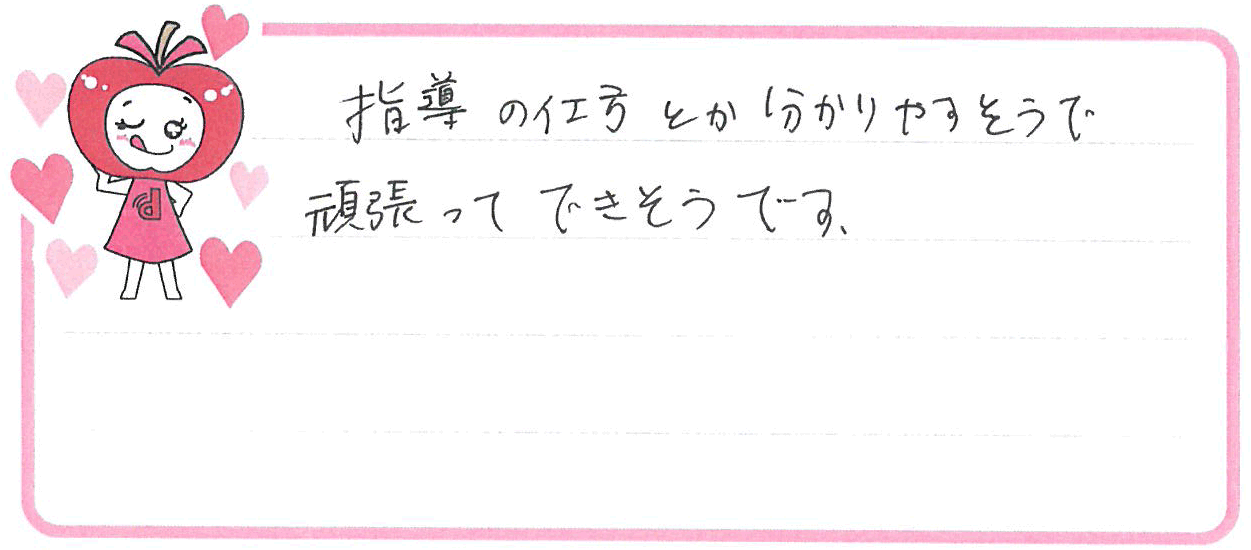 指導の仕方とか分かりやすそうで
頑張ってできそうです、